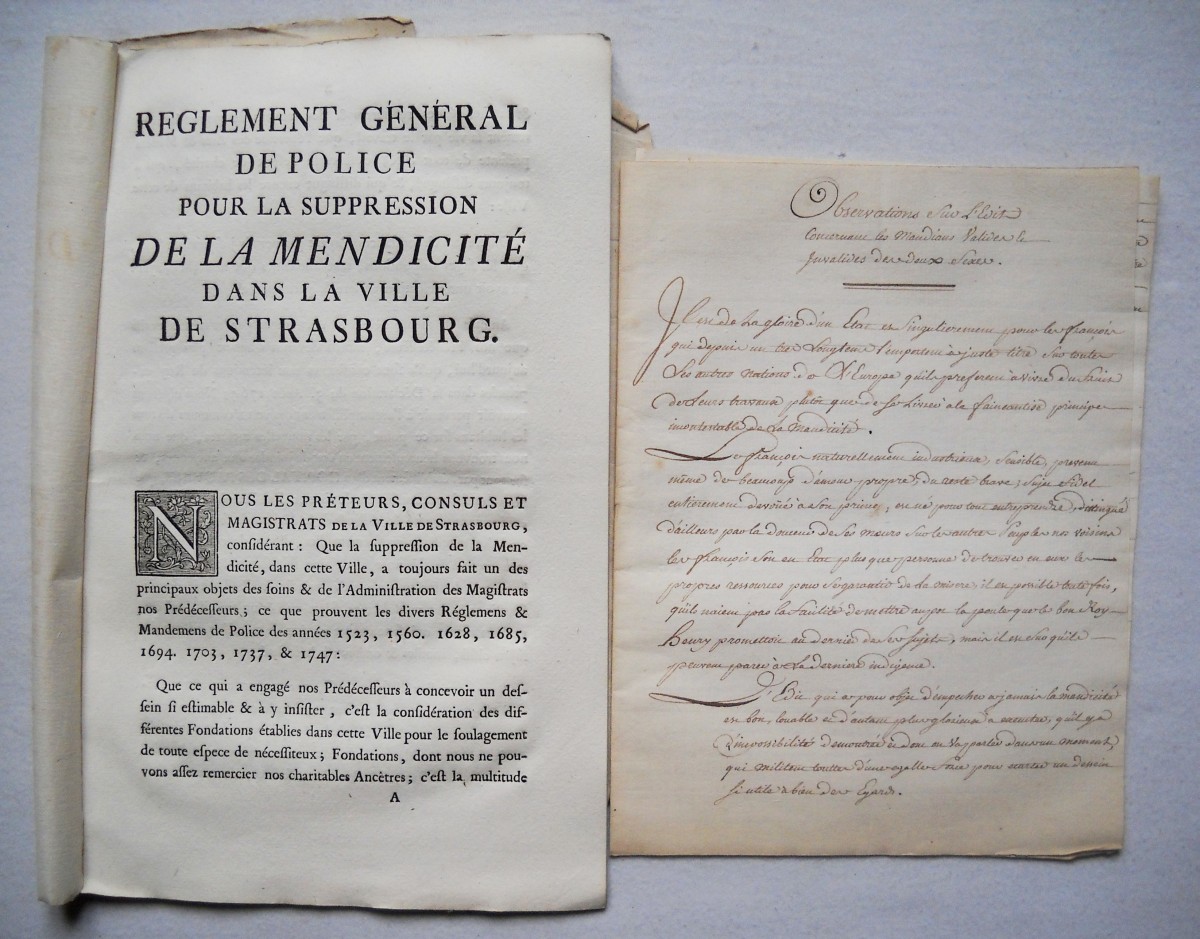 REGLEMENT GÉNÉRAL
DE POLICE
POUR LA SUPPRESSION
DE LA MENDICITÉ
DANS LA VILLE
DE STRASBOURG.
NOUS LES PRÉTEURS, CONSULS ET
MAGISTRATS DE LA VILLE DE STRASBOURG,
conſidérant : Que la ſuppreſſion de la Men-
dicité, dans cette Ville, a toujours fait un des
principaux objets des ſoins & de l'Adminiſtration des Magiſtrats
nos Prédéceſſeurs ; ce que prouvent les divers Réglemens &
Mandemens de Police des années 1523, 1560. 1628, 1685,
1694. 1703, 1737, & 1747 :
Que ce qui a engagé nos Prédéceſſeurs à concevoir un deſ-
ſein ſi eſtimable & à y inſiſter, c'eſt la conſidération des diſ-
férentes Fondations établies dans cette Ville pour le ſoulagement
de toute eſpece de néceſſiteux ; Fondations, dont nous ne pou-
vons aſſez remercier nos charitables Ancêtres ; c'eſt la multitude
A
Observations Sur L'Edit
Concernant les Mandians Valides &
Invalides des deux Sexes.
Il est de La gloire d'un Etat et Singulierement pour les françois
qui depuis un tres Longtems l'emportent a juste titre Sur toutes
Les autres nations de L'Europe qu'ils preferent a vivre du fruit
de Leurs travaux plutot que de Se Livrer a la faineantise principe
incontestable de La Mandicité.
Le françois naturellement industrieux, Sensible, prevenu
même de beaucoup d'amour propre, du reste brave, Sujet fidel
entierement devoué a Son prince, est né pour tout entreprendre, distingué
d'ailleurs par la douceur de Ses mœurs Sur les autres Peuples nos voisins
les françois Son en Etat plus que personne de trouver en eux les
propres ressources pour Se garantir de la misere, il est possible toutefois,
qu'ils n'aient pas la facilité de mettre au pot la poule que le bon Roy
Henry promettoit au dernier de Ses Sujets, mais il est Sur qu'ils
peuvent parer a La derniere indigence.
L'Edit qui a pour objet d'empecher a jamais la mandicité
est bon, louable et d'autant plus glorieux a executer, qu'il y a
L'impossibilité demontrée
qui militent toutte d'une egalle force pour
si utile a bien des Egards.